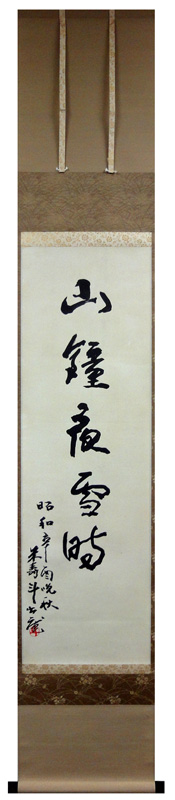 山鐘夜雪時
昭和辛酉晩秋
米壽斗山